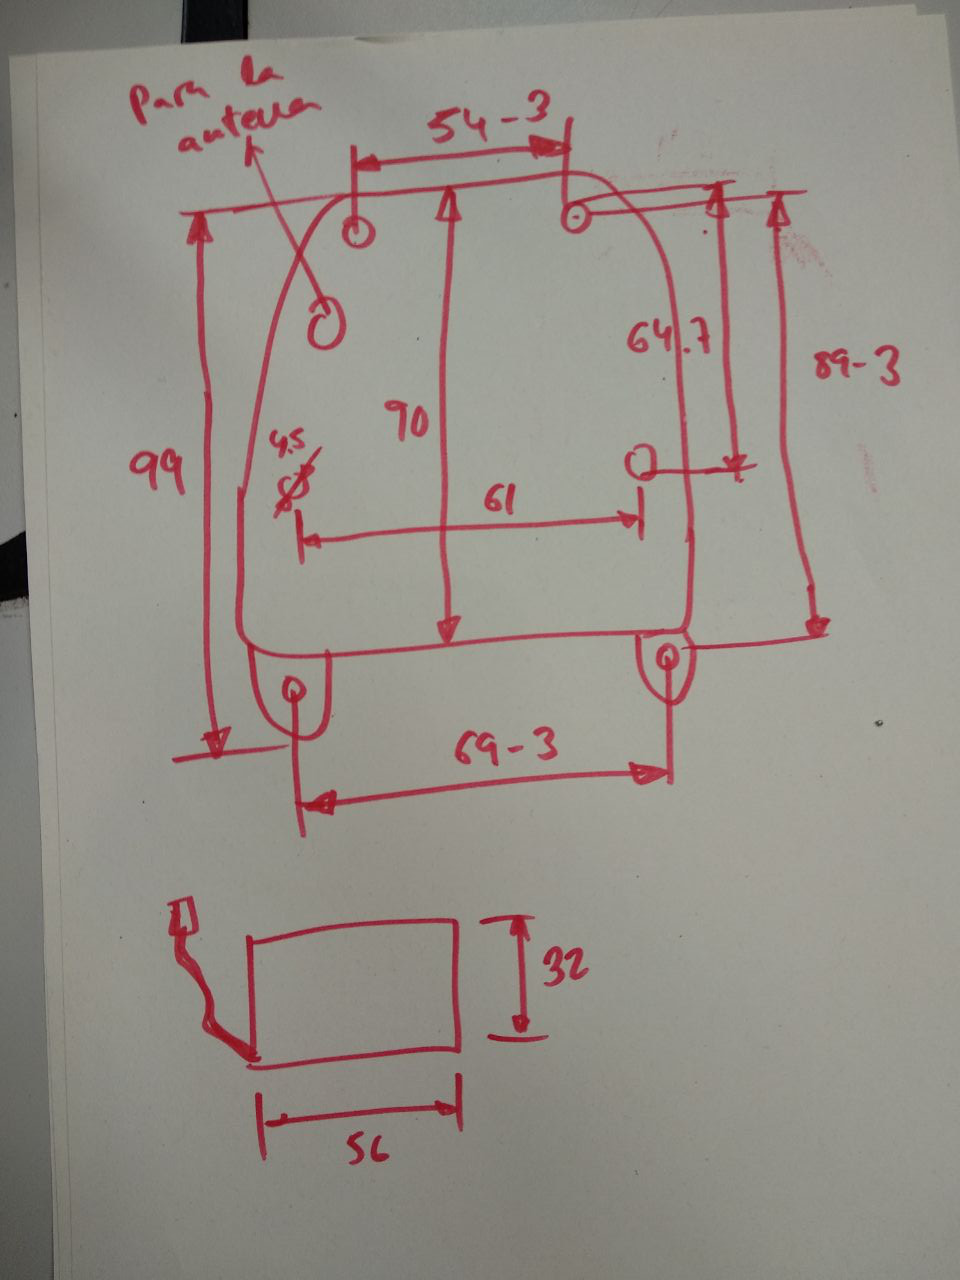 Para la
antena
54-3
64.7
89-3
90
99
4.5
61
69-3
32
56